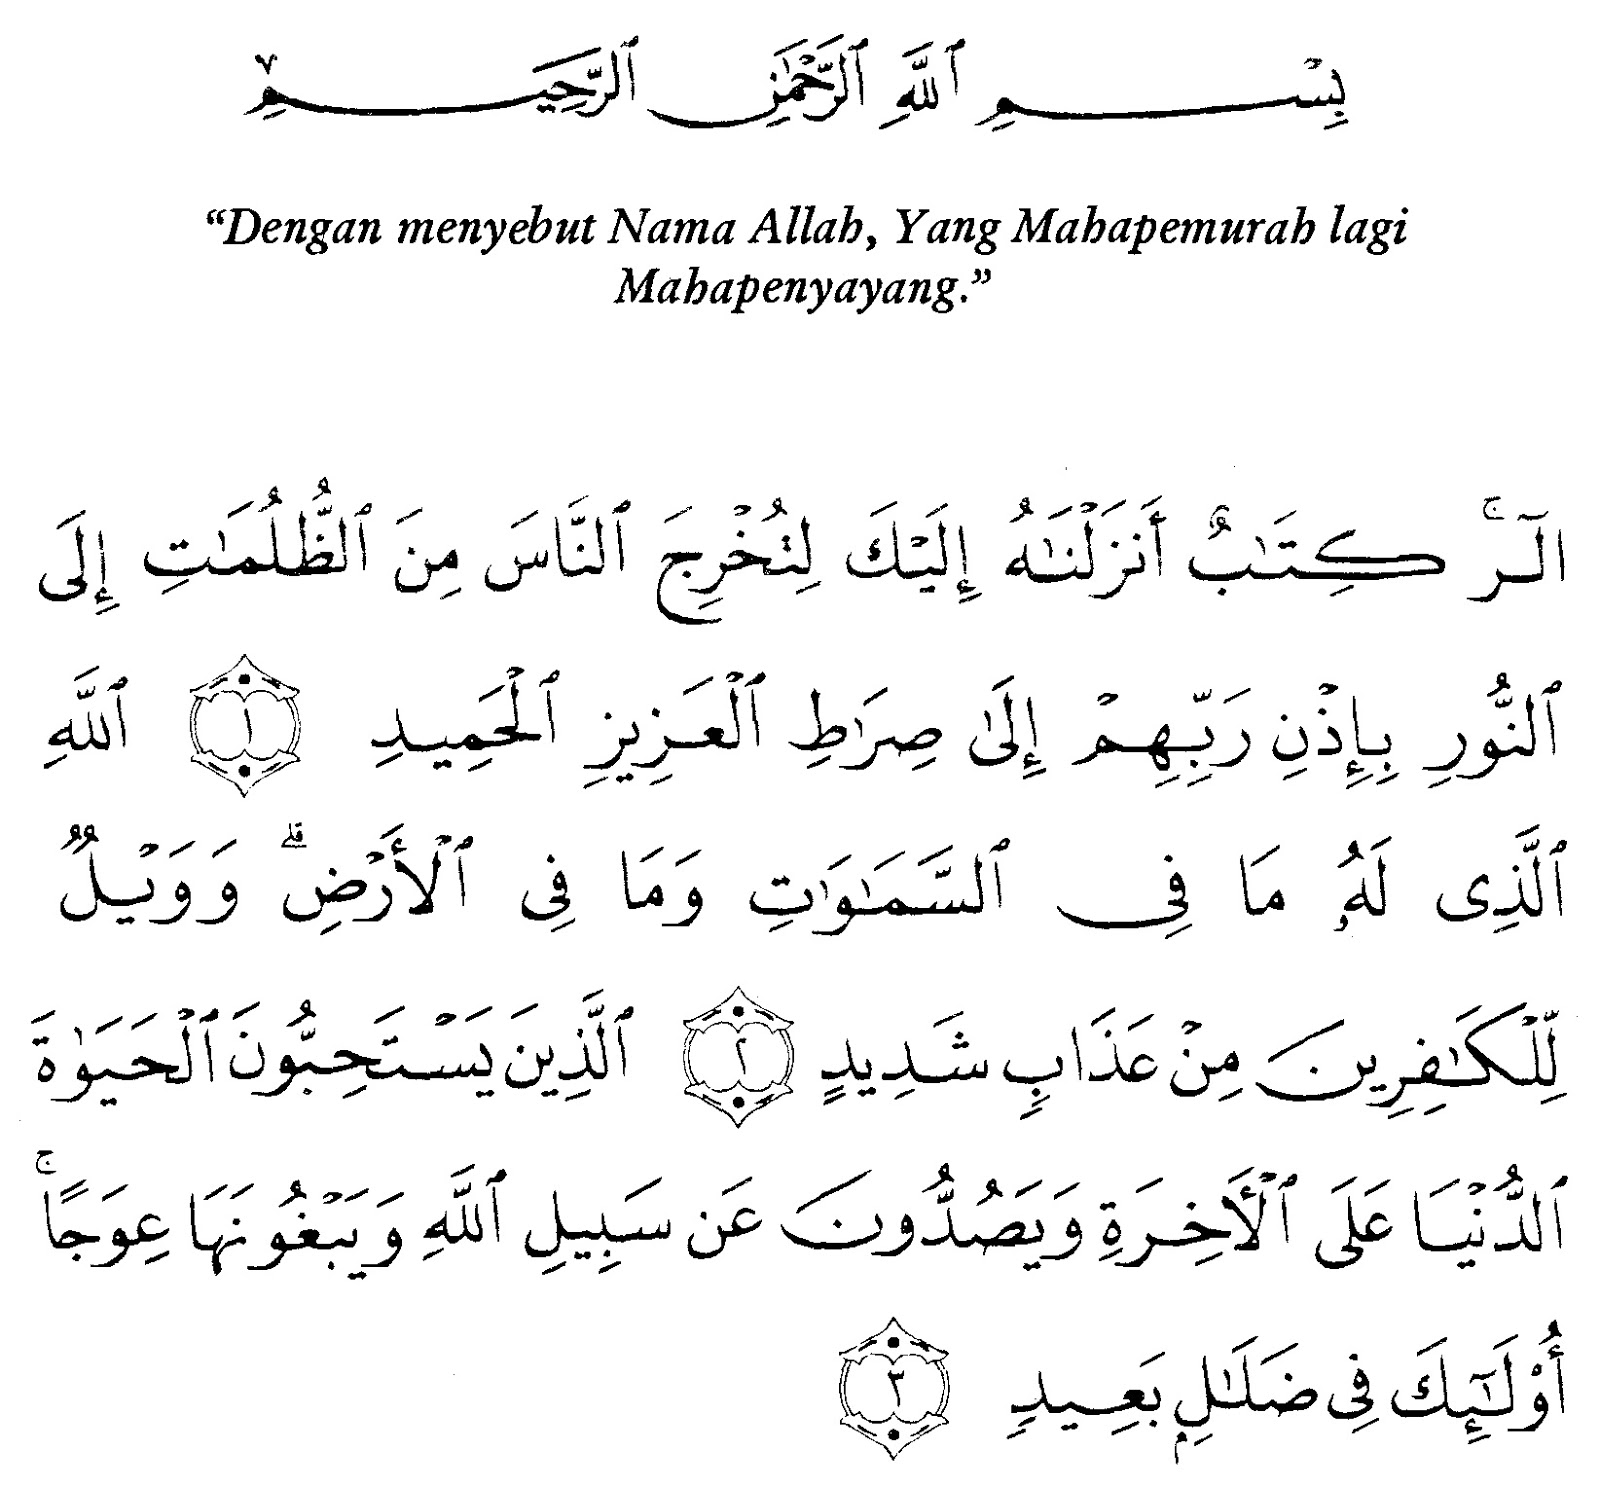 بِسْمِ ٱللَّهِ ٱلرَّحْمَٰنِ ٱلرَّحِيمِ
“Dengan menyebut Nama Allah, Yang Mahapemurah lagi
Mahapenyayang.”
الٓرۚ كِتَٰبٌ أَنزَلْنَٰهُ إِلَيْكَ لِتُخْرِجَ ٱلنَّاسَ مِنَ ٱلظُّلُمَٰتِ إِلَى
ٱلنُّورِ بِإِذْنِ رَبِّهِمْ إِلَىٰ صِرَٰطِ ٱلْعَزِيزِ ٱلْحَمِيدِ ١ ٱللَّهِ
ٱلَّذِى لَهُۥ مَا فِى ٱلسَّمَٰوَٰتِ وَمَا فِى ٱلْأَرْضِۗ وَوَيْلٌ
لِّلْكَٰفِرِينَ مِنْ عَذَابٍ شَدِيدٍ ٢ ٱلَّذِينَ يَسْتَحِبُّونَ ٱلْحَيَوٰةَ
ٱلدُّنْيَا عَلَى ٱلْأَخِرَةِ وَيَصُدُّونَ عَن سَبِيلِ ٱللَّهِ وَيَبْغُونَهَا عِوَجًاۚ
أُو۟لَٰٓئِكَ فِى ضَلَٰلٍۭ بَعِيدٍ ٣